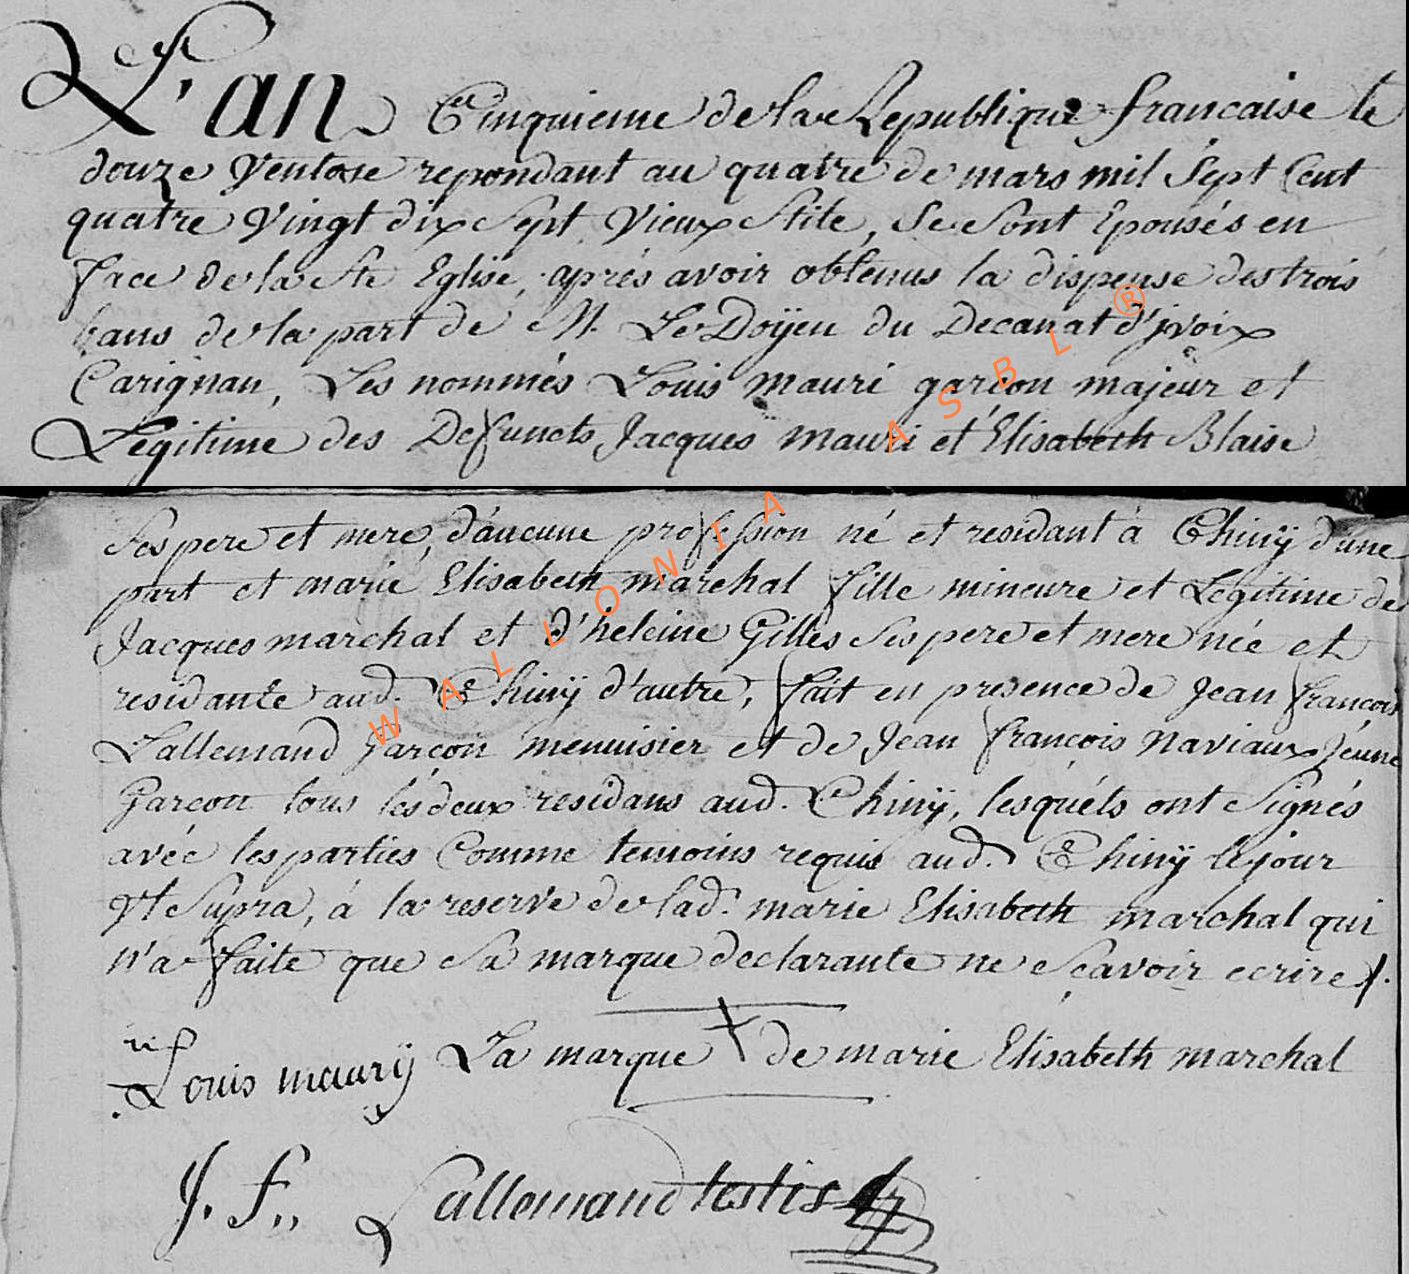 L'an Cinquieme de la Republique francaise le
douze Ventose repondant au quatre de mars mil Sept Cent
quatre Vingt dix Sept Vieux Stile, Se Sont Epousés en
face de la Ste Eglise, aprés avoir obtenus la dispense des trois
bans de la part de M. Le Doÿen du Decanat d'jvoix
Carignan, Les nommés Louis mauri garcon majeur et
Legitime des Defuncts Jacques mauri et Elisabeth Blaise
Ses pere et mere, d'aucune profession né et residant à Chinÿ d'une
part et marie Elisabeth marchal fille mineure et Legitime de
Jacques marchal et d'heleine Gilles Ses pere et mere née et
residante aud. Chinÿ d'autre, fait en presence de Jean françois
Lallemand garçon menuisier et de Jean françois Naviaux Jeune
Garcon tous les deux residans aud. Chinÿ, lesquéls ont Signés
avéc les parties Comme temoins requis aud. Chinÿ le jour
Vt Supra, à la reserve de lad. marie Elisabeth marchal qui
n'a faite que Sa marque declarante ne Sçavoir ecrire ./.
Louis maurÿ La marque + de marie Elisabeth marchal
J. F. Lallemand testis
WALLONIA ASBL ®